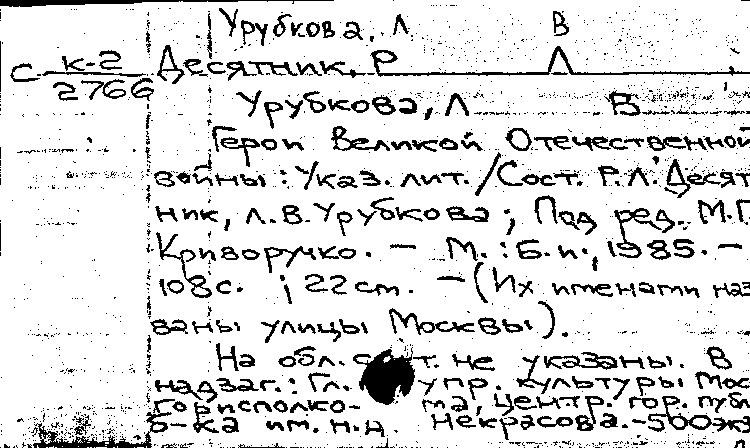 Урубкова, Л В
с к-2 Десятник, Р Л
2766
Урубкова, Л В
Герои Великой Отечественной
войны : Указ. лит. / Сост. Р.Л. Десят
ник, Л.В. Урубкова ; Под ред. М.П.
Криворучко. – М. : Б.и., 1985. –
108 с. ; 22 см. – (Их именами наз
ваны улицы Москвы).
На обл. сост. не указаны. В
надзаг.: Гл. упр. культуры Мос
горисполко- ма, Центр. гор. публ
б-ка им. Н.А. Некрасова. – 500 экз